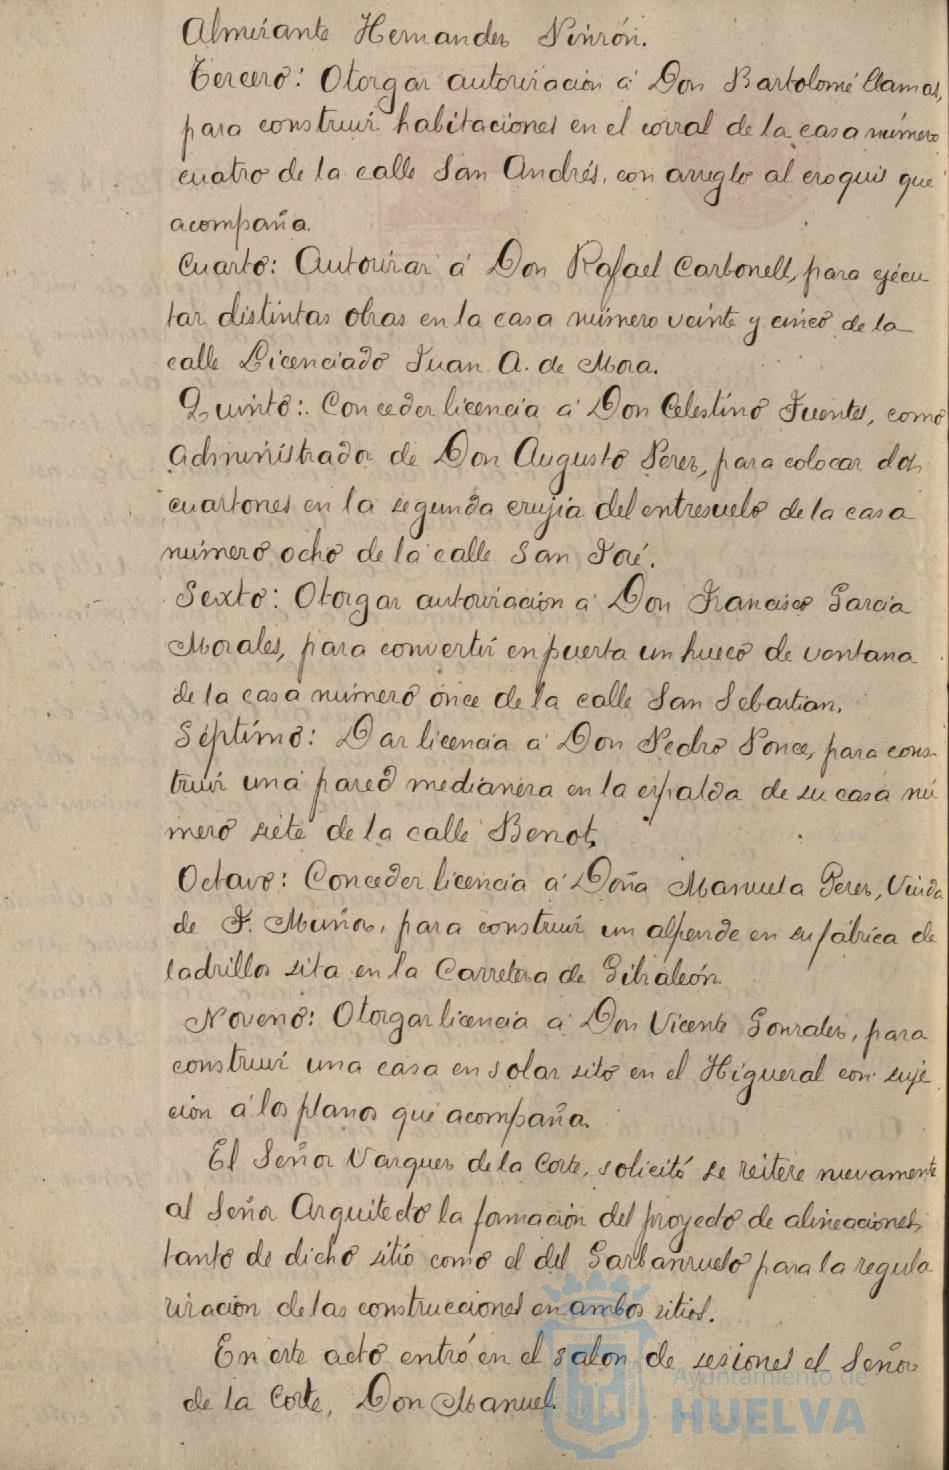 Almirante Hernandez Pinzón.
Tercero: Otorgar autorizacion á Don Bartolomé Llamas,
para construir habitaciones en el corral de la casa número
cuatro de la calle San Andrés, con arreglo al croquis que
acompaña.
Cuarto: Autorizar á Don Rafael Carbonell, para ejecu
tar distintas obras en la casa número veinte y cinco de la
calle Licenciado Juan A. de Mora.
Quinto: Conceder licencia á Don Celestino Fuentes, como
administrador de Don Augusto Perez, para colocar dos
cuartones en la segunda crujia del entresuelo de la casa
número ocho de la calle San José.
Sexto: Otorgar autorizacion á Don Francisco Garcia
Morales, para convertir en puerta un hueco de ventana
de la casa número once de la calle San Sebastian.
Séptimo: Dar licencia á Don Pedro Ponce, para cons-
truir una pared medianera en la espalda de su casa nú
mero siete de la calle Benot.
Octavo: Conceder licencia á Doña Manuela Perez, Viuda
de F. Muñoz, para construir un alpende en su fábrica de
ladrillos sita en la Carretera de Gibraleón.
Noveno: Otorgar licencia á Don Vicente Gonzalez, para
construir una casa en solar sito en el Higueral con suje
ción á los planos que acompaña.
El Señor Vazquez de la Corte, solicitó se reitere nuevamente
al Señor Arquitecto la formación del proyecto de alineaciones,
tanto de dicho sitio como el del Garbanzuelo para la regula
rización de las construcciones en ambos sitios.
En este acto entró en el salon de sesiones el Señor
de la Corte, Don Manuel.
Ayuntamiento de
HUELVA